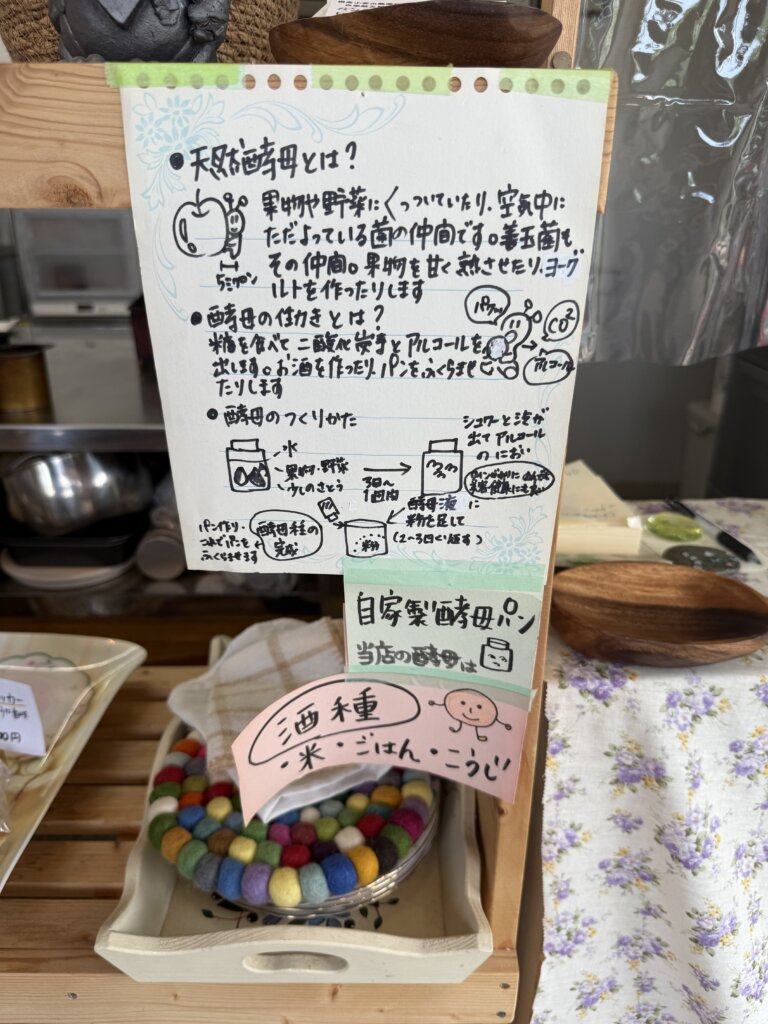 ●天然酵母とは?
果物や野菜にくっついていたり、空気中に
ただよっている菌の仲間です。善玉菌も
その仲間。果物を甘く熟させたり、ヨーグ
ルトを作ったりします
5ミクロン
●酵母の働きとは?
糖を食べて二酸化炭素とアルコールを
出します。お酒を作ったり、パンをふくらませ
たりします
パクッ
CO²
アルコール
●酵母のつくりかた
・水
・果物・野菜
・少しのさとう
3日〜
1週間
シュワーと泡が
出てアルコール
のにおい
酵母液に
粉を足して
(2〜3日くり返す)
粉
酵母種の
完成
パン作り・
これでパンを
ふくらませます
自家製酵母パン
当店の酵母は
酒種
・米・ごはん・こうじ